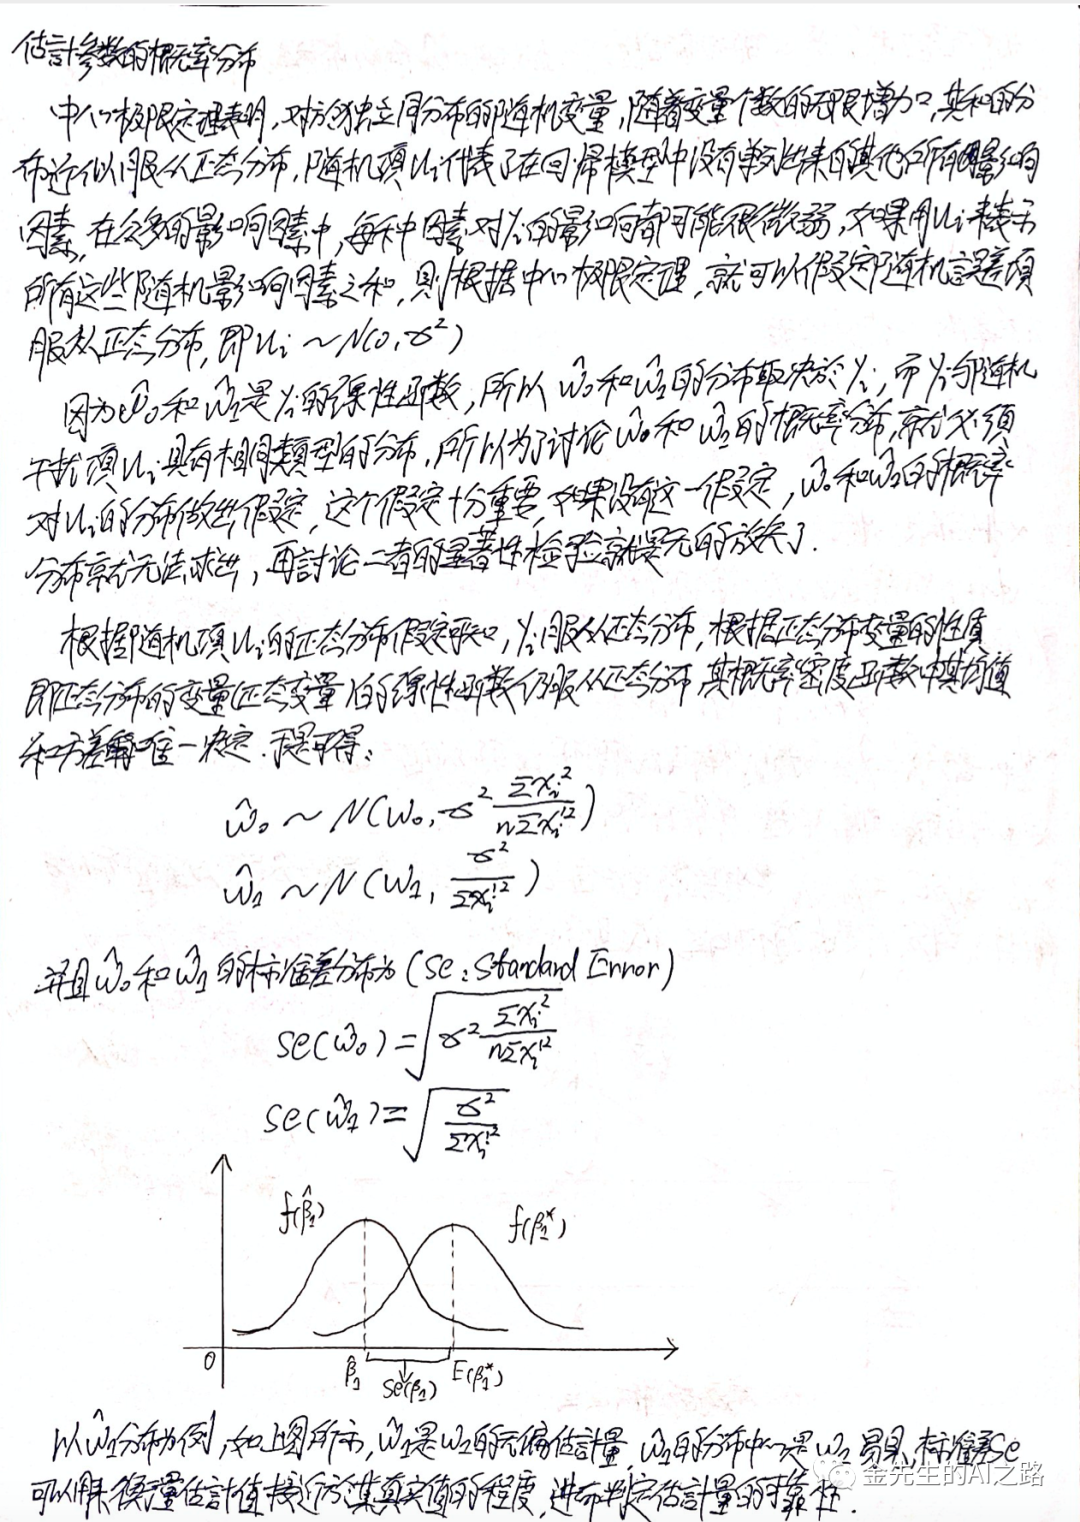 估計参数的概率分布
中心极限定理表明,对於独立同分布的随机变量,随着变量个数的无限增加,其和的分
布近似服从正态分布,随机項ui代表了在回帰模型中没有单列出来的其他所有影响
因素,在众多的影响因素中,每种因素对yi的影响都可能很微弱,如果用ui来表示
所有这些随机影响因素之和,则根据中心极限定理,就可以假定随机誤差項
服从正态分布,即ui ~ N(0, σ²)
因为ŵ₀和ŵ₁是yi的线性函数,所以ŵ₀和ŵ₁的分布取决於yi,而yi与随机
干扰項ui具有相同類型的分布,所以为了讨论ŵ₀和ŵ₁的概率分布,就必须
对ui的分布做出假定,这个假定十分重要,如果没有这一假定,ŵ₀和ŵ₁的概率
分布就无法求出,再討论二者的显著性检验就是无的放矢了.
根据随机項ui的正态分布假定可知,yi服从正态分布,根据正态分布变量的性质
即正态分布的变量(正态变量)的线性函数仍服从正态分布,其概率密度函数由其均值
和方差唯一决定.于是可得:
ŵ₀ ~ N(w₀, σ² Σxi² / nΣxi'²)
ŵ₁ ~ N(w₁, σ² / Σxi'²)
并且ŵ₀和ŵ₁的标准差分布为(Se:Standard Error)
Se(ŵ₀)=√(σ² Σxi² / nΣxi'²)
Se(ŵ₁)=√(σ² / Σxi'²)
f(β̂₁)
f(β₁*)
0
β̂₁
Se(β₁)
E(β₁*)
以ŵ₁分布为例,如上图所示,ŵ₁是w₁的无偏估計量,ŵ₁的分布中心是w₁易見,标准差Se
可以用来衡量估計值接近於其真实值的程度,进而判定估計量的可靠性.
金先生的AI之路